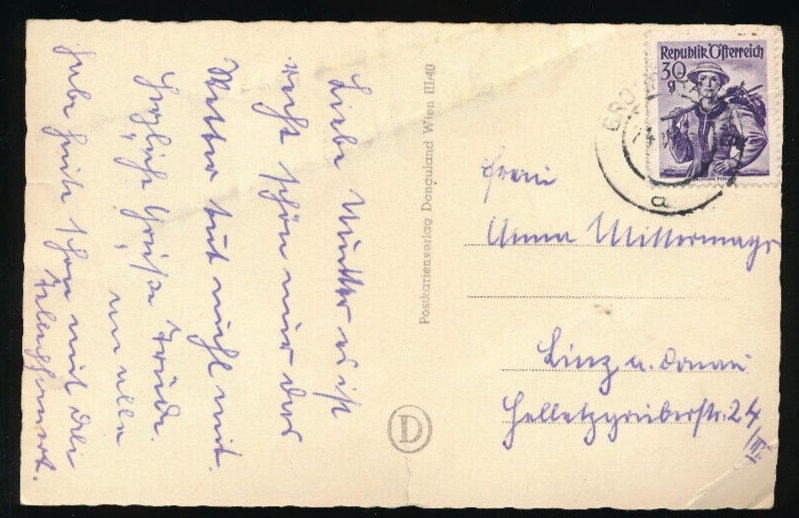 Liebe Mutter es ist
recht schön nur das
Wetter tut nicht mit.
Herzliche Grüße Trude.
um alle
habe heute schon mit
telef
Postkartenverlag Donauland Wien III/40
D
Republik Österreich
30
g
GRO
a
Frau
Anna Mittermayr
Linz a. Donau
Str. 24
/III.